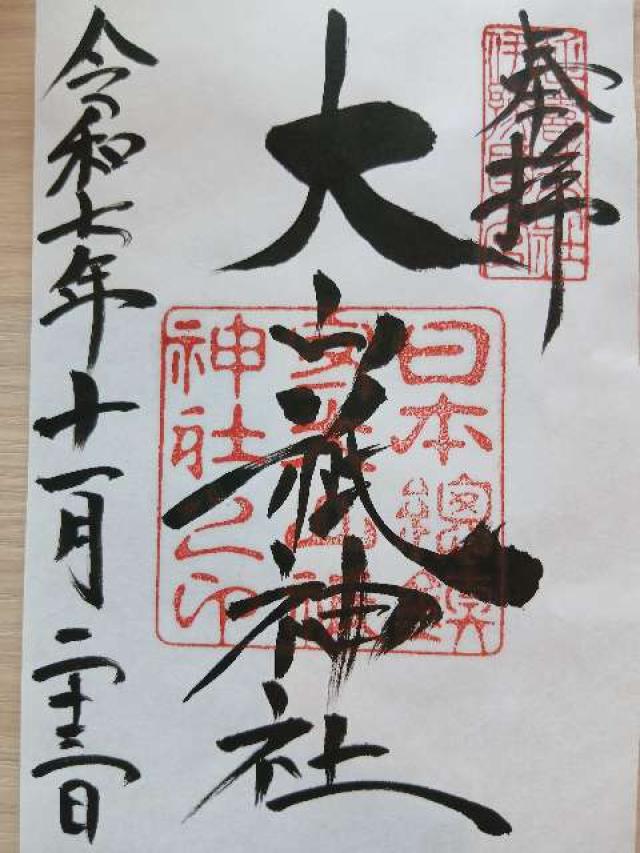 奉拝
大山祇神社
日本總鎮
神社之印
令和七年十一月二十三日